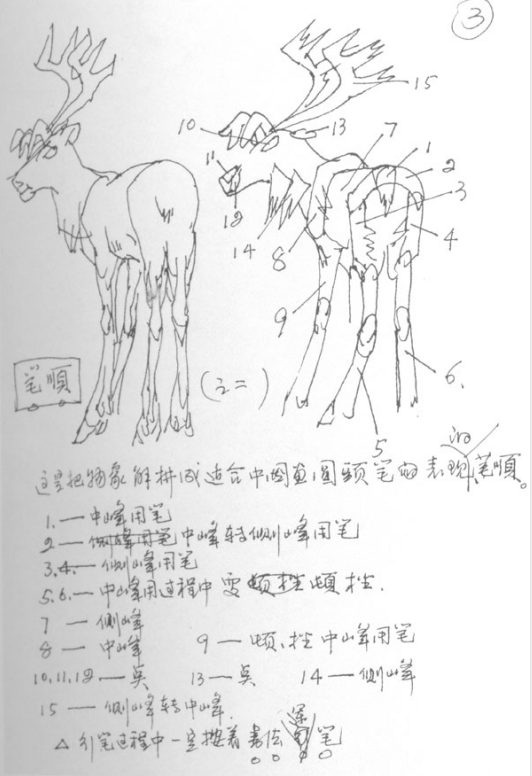 ③
15
10
13
7
1
11
2
3
12
4
14
8
9
6.
5
笔順
(之二)
这是把物象解析成适合中国画圆头笔的表现的笔順。
1.—中峰用笔
2—中峰转侧峰用笔
3.4.—侧峰用笔
5.6.—中峰用过程中要顿挫.
7—侧峰
8—中峰
9—顿、挫中峰用笔
10.11.12—点
13—点
14—侧峰
15—侧峰转中峰.
△ 行笔过程中一定按着書法笔